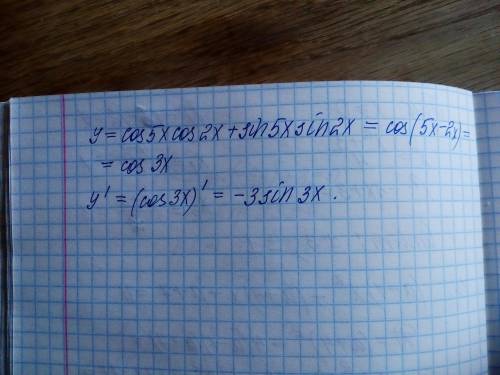 y = cos5x cos2x + sin5x sin2x = cos(5x-2x) =
= cos 3x
y' = (cos3x)' = -3 sin 3x.